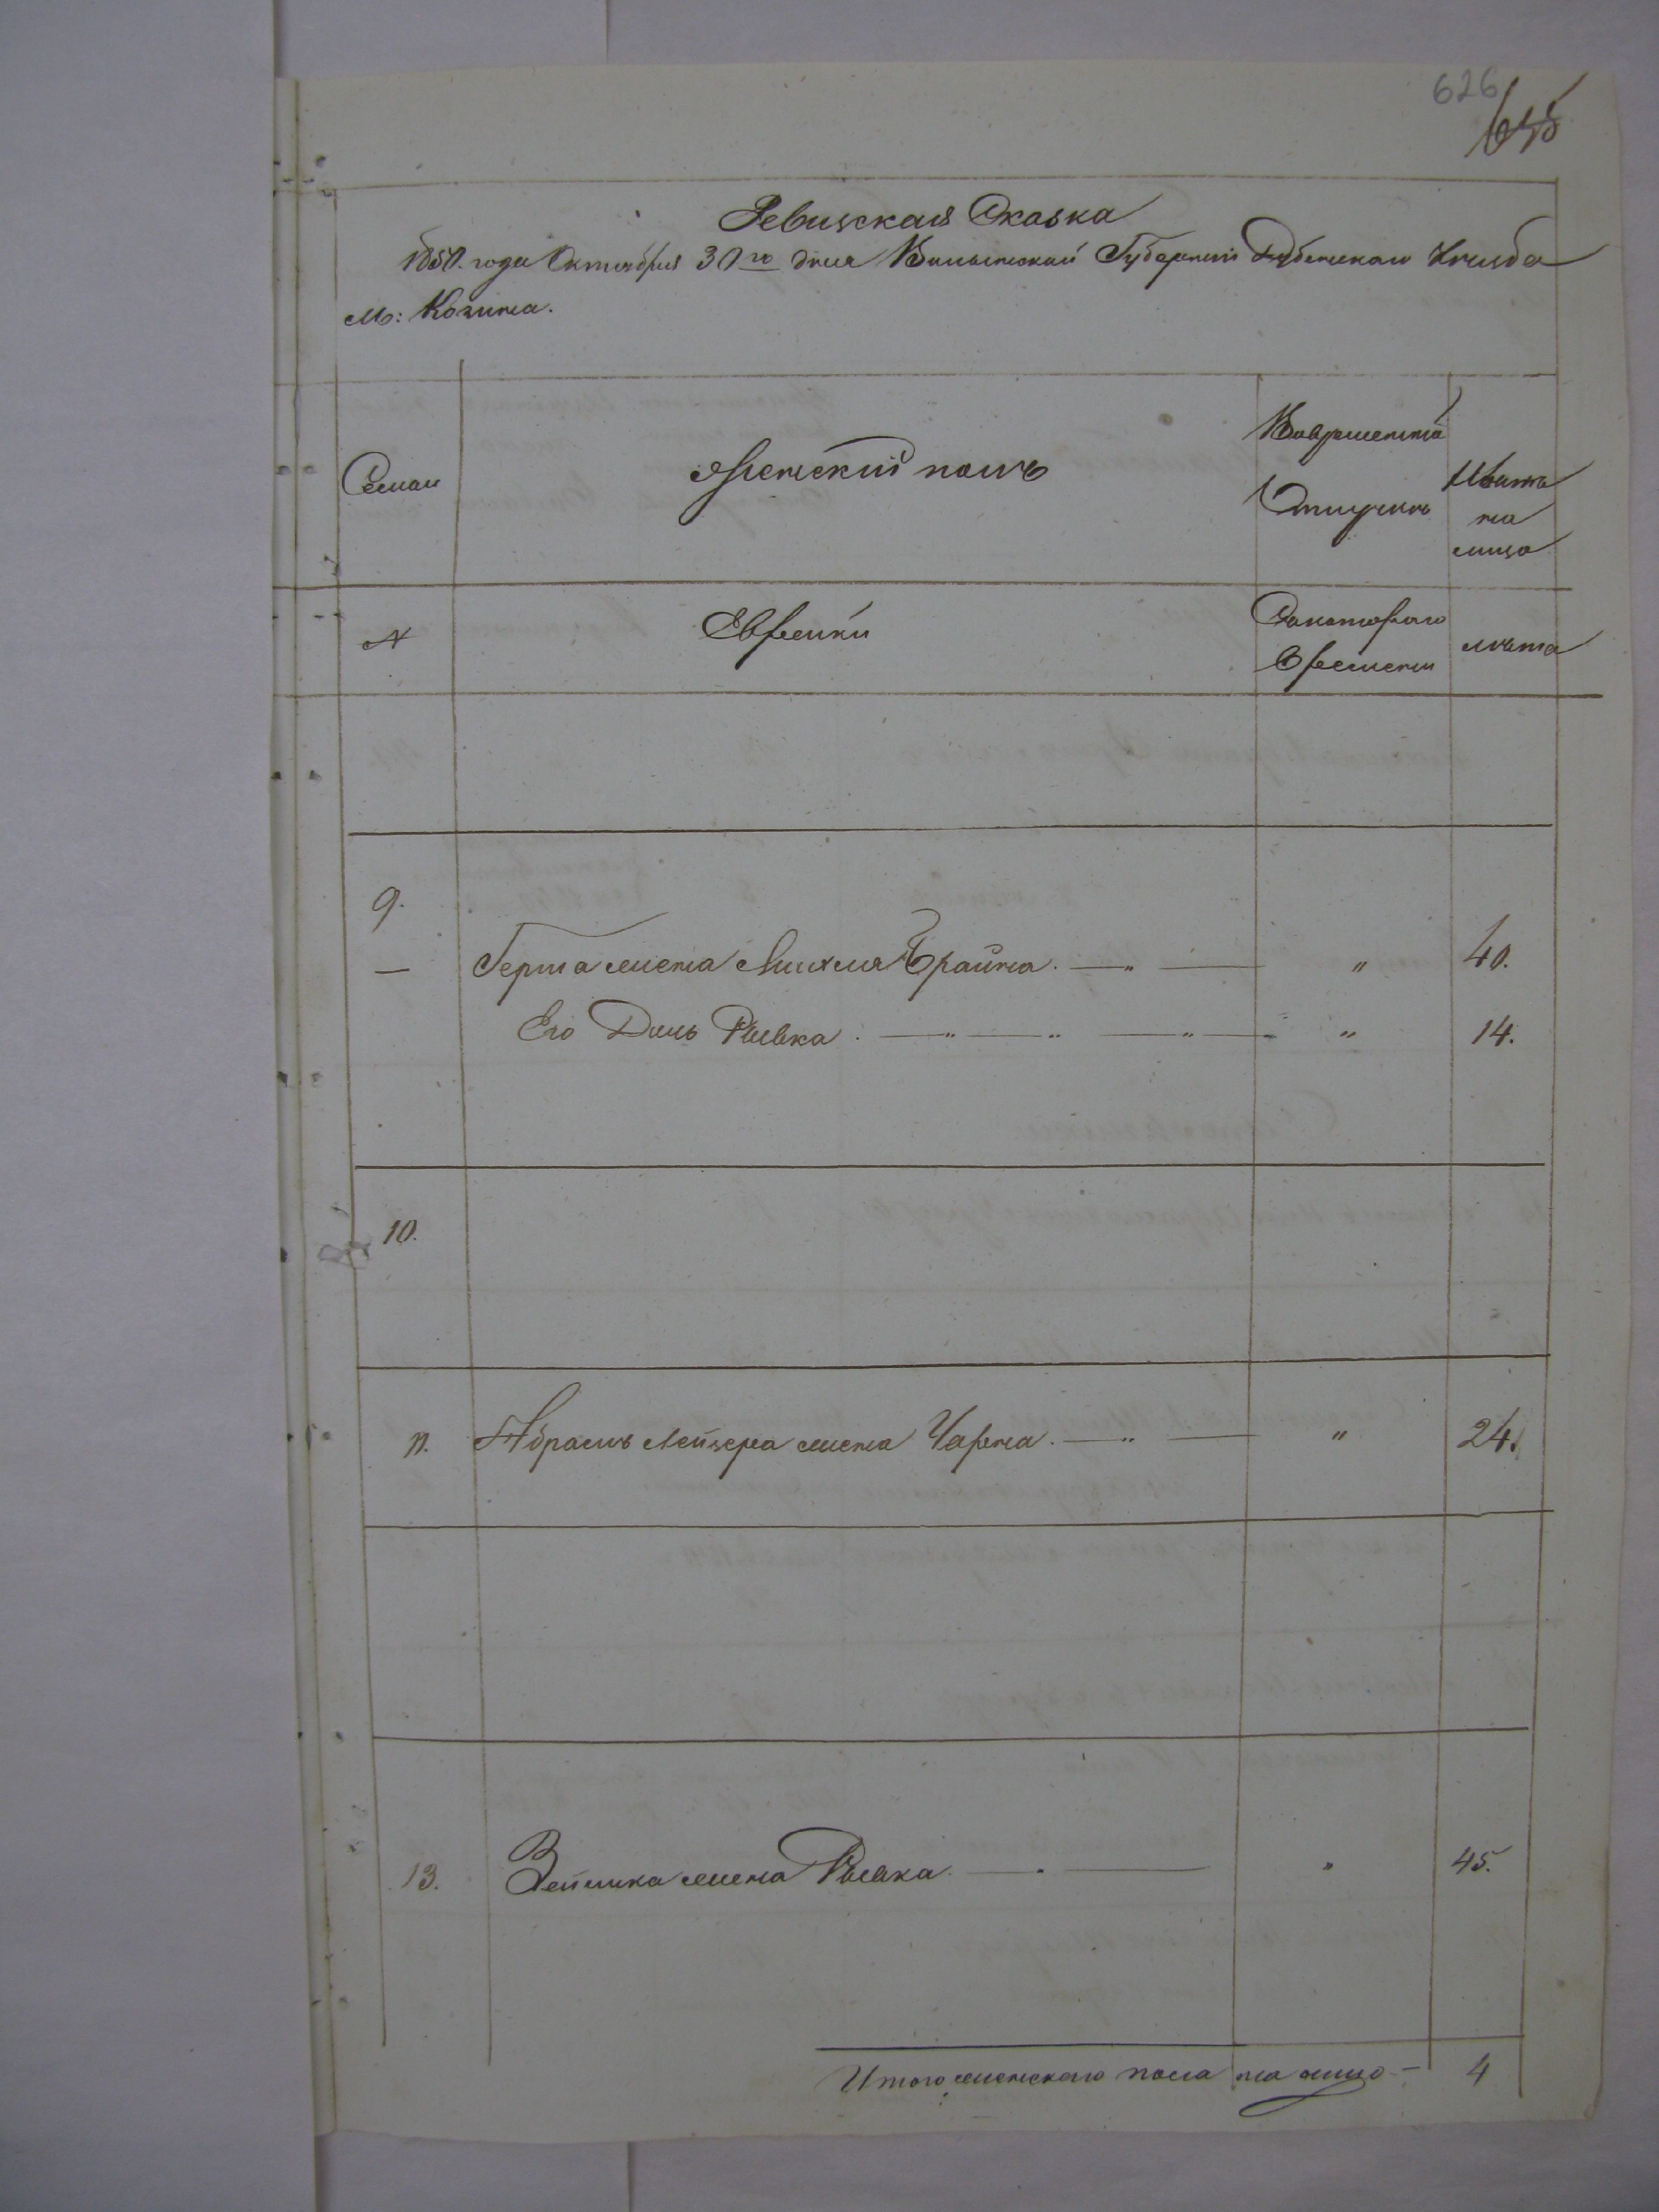 626
Ревизская Сказка
1850. года Октября 30го дня Волынской Губернии Дубенскаго Уѣзда
М: Козина.
Семьи
Женский полъ
Вовременной
Отлучкѣ
Изъ того
на
лицо
№
Еврейки
Скотораго
времени
лѣта
9.
— Герша жена Михля Брайна. — „ — „ 40.
Его Дочь Рывка. — „ — „ — „ — „ 14.
10.
11. Абрамъ Лейзера жена Чарна. — „ — „ 24.
13. Зейлика жена Рывка. — „ — „ 45.
Итого женскаго пола на лицо — 4